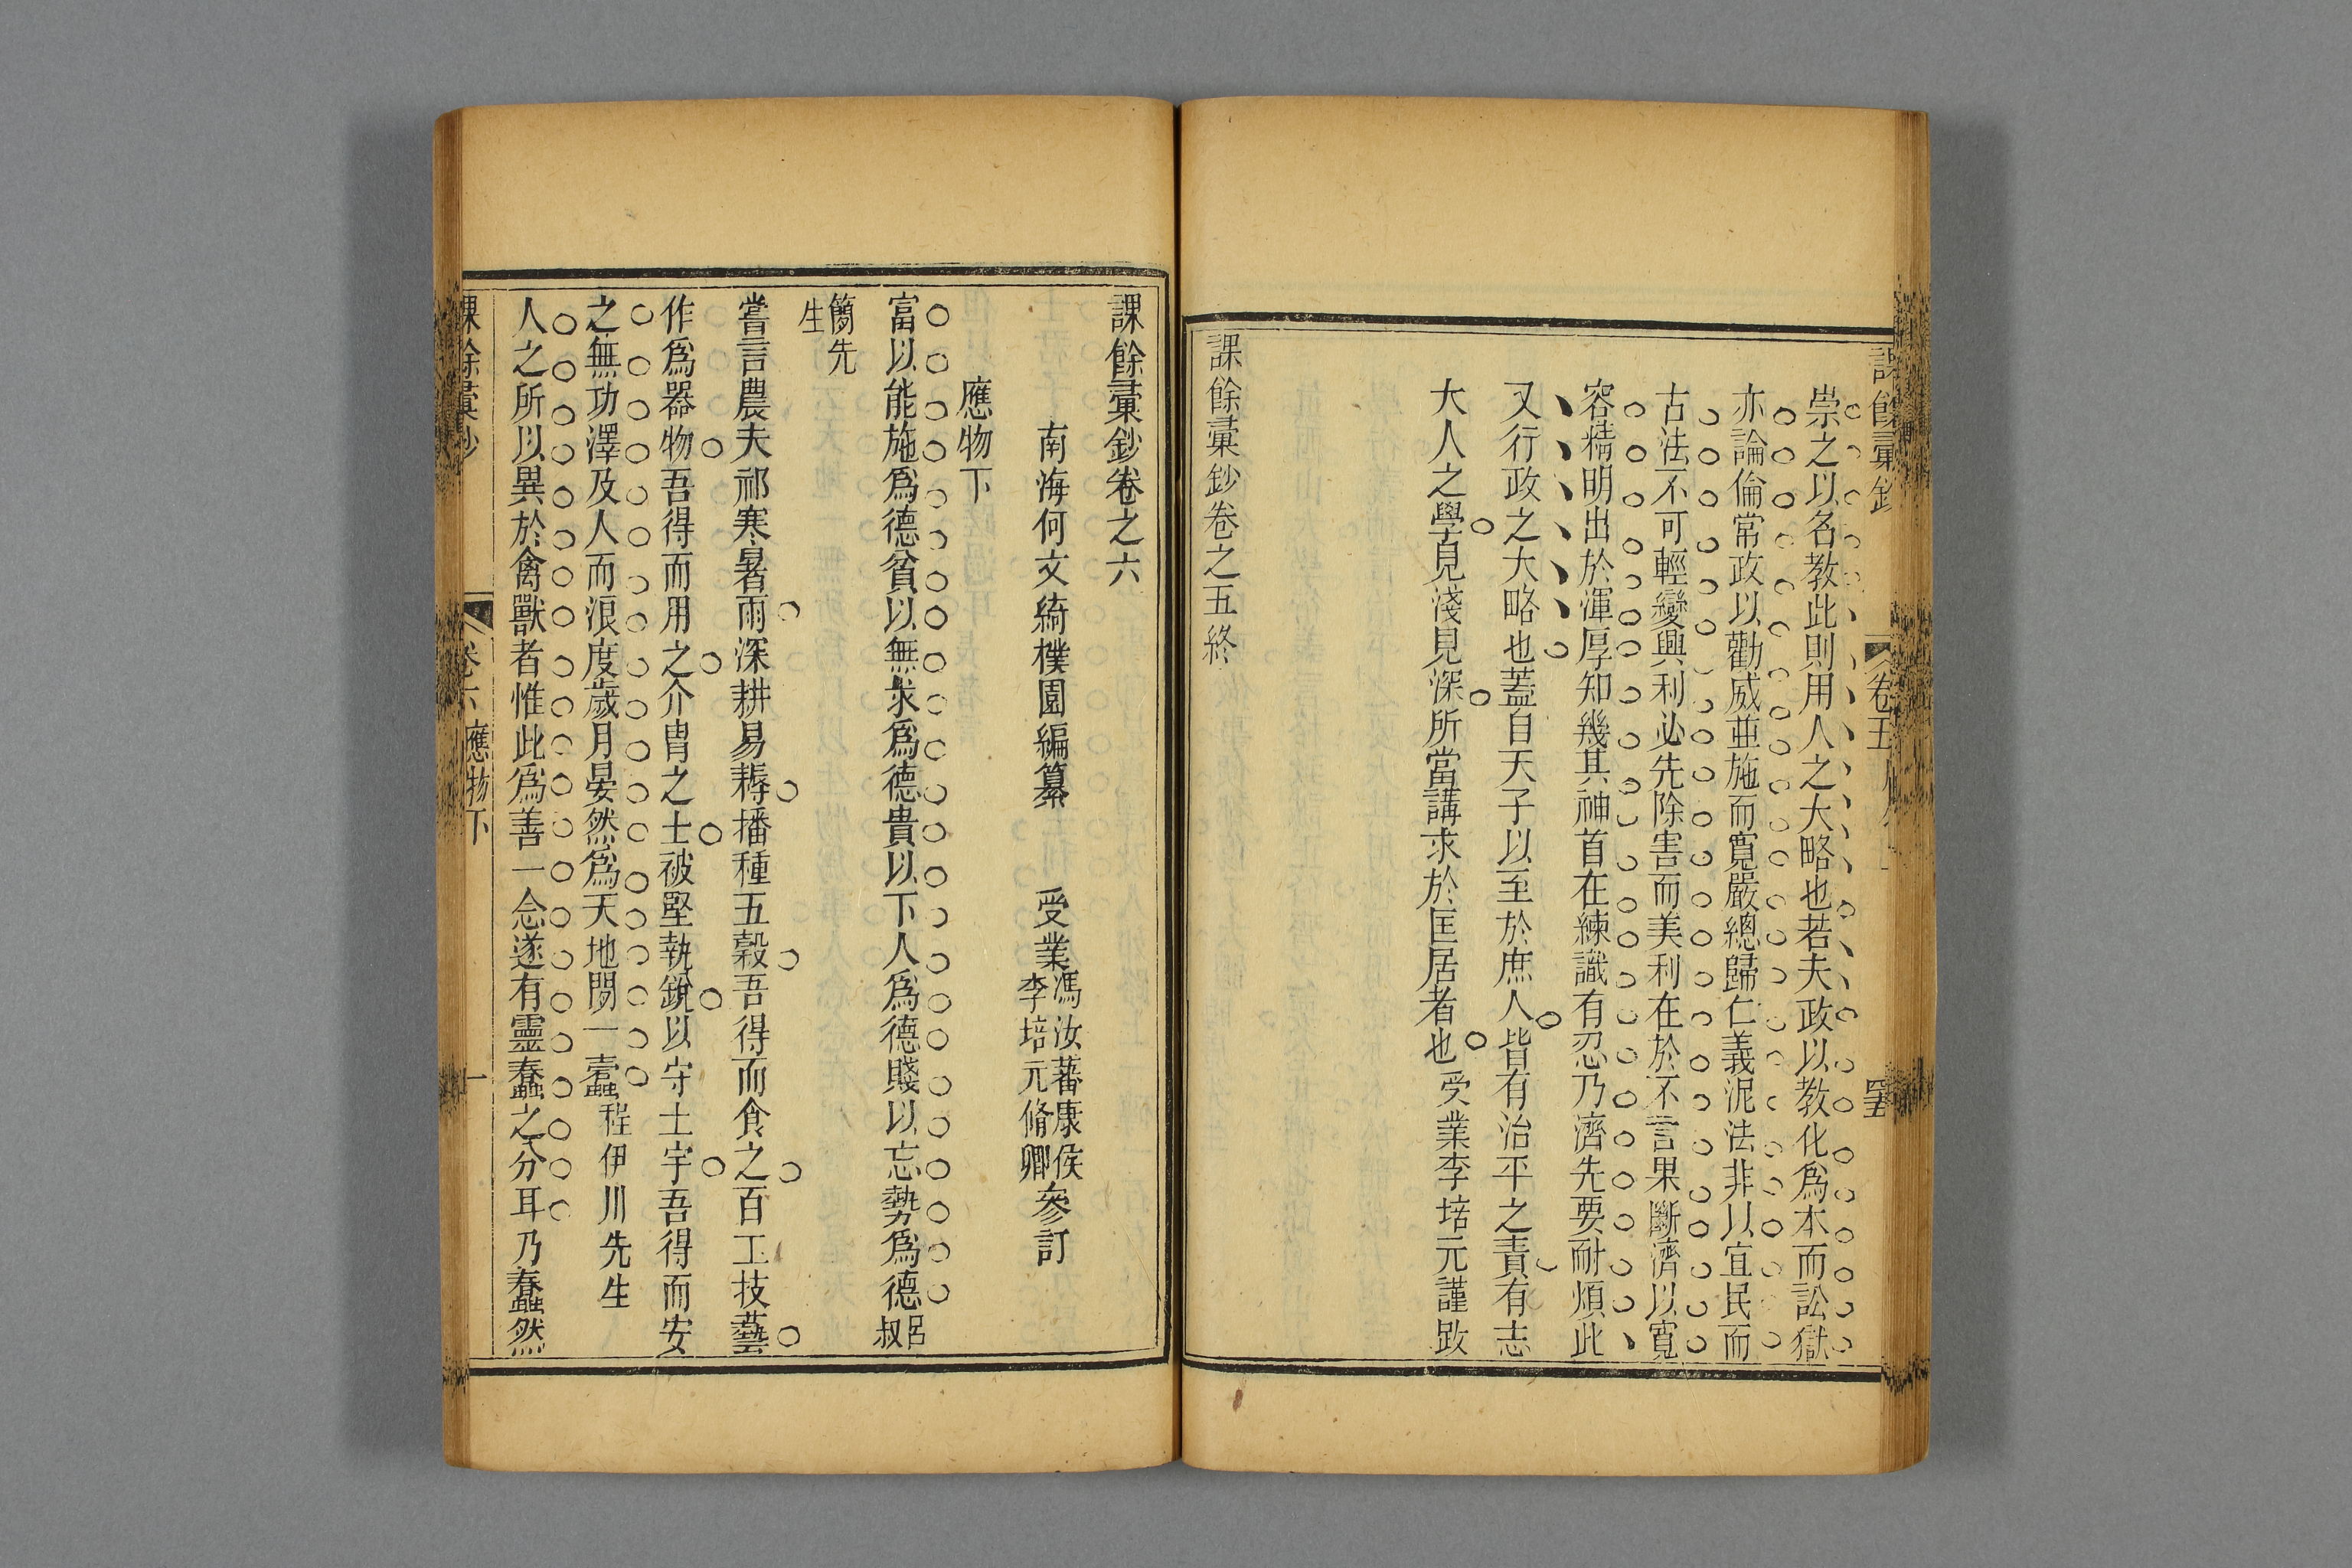 崇之以名教此則用人之大略也若夫政以教化爲本而訟獄
亦論倫常政以勸威並施而寬嚴總歸仁義泥法非以宜民而
古法不可輕變興利必先除害而美利在於不言果斷濟以寬
容精明出於渾厚知幾其神首在練識有忍乃濟先要耐煩此
又行政之大略也蓋自天子以至於庶人皆有治平之責有志
大人之學見淺見深所當講求於匡居者也 受業李培元謹跋
課餘彙鈔卷之五終
卷五
課餘彙鈔卷之六
南海何文綺樸園編纂 受業馮汝蕃康侯李培元脩卿參訂
應物下
富以能施爲德貧以無求爲德貴以下人爲德賤以忘勢爲德呂叔
簡先生
嘗言農夫祁寒暑雨深耕易耨播種五穀吾得而食之百工技藝
作爲器物吾得而用之介冑之士被堅執銳以守土宇吾得而安
之無功澤及人而浪度歲月晏然爲天地間一蠹程伊川先生
人之所以異於禽獸者惟此爲善一念遂有靈蠢之分耳乃蠢然
課餘彙鈔 卷六 應物下 一